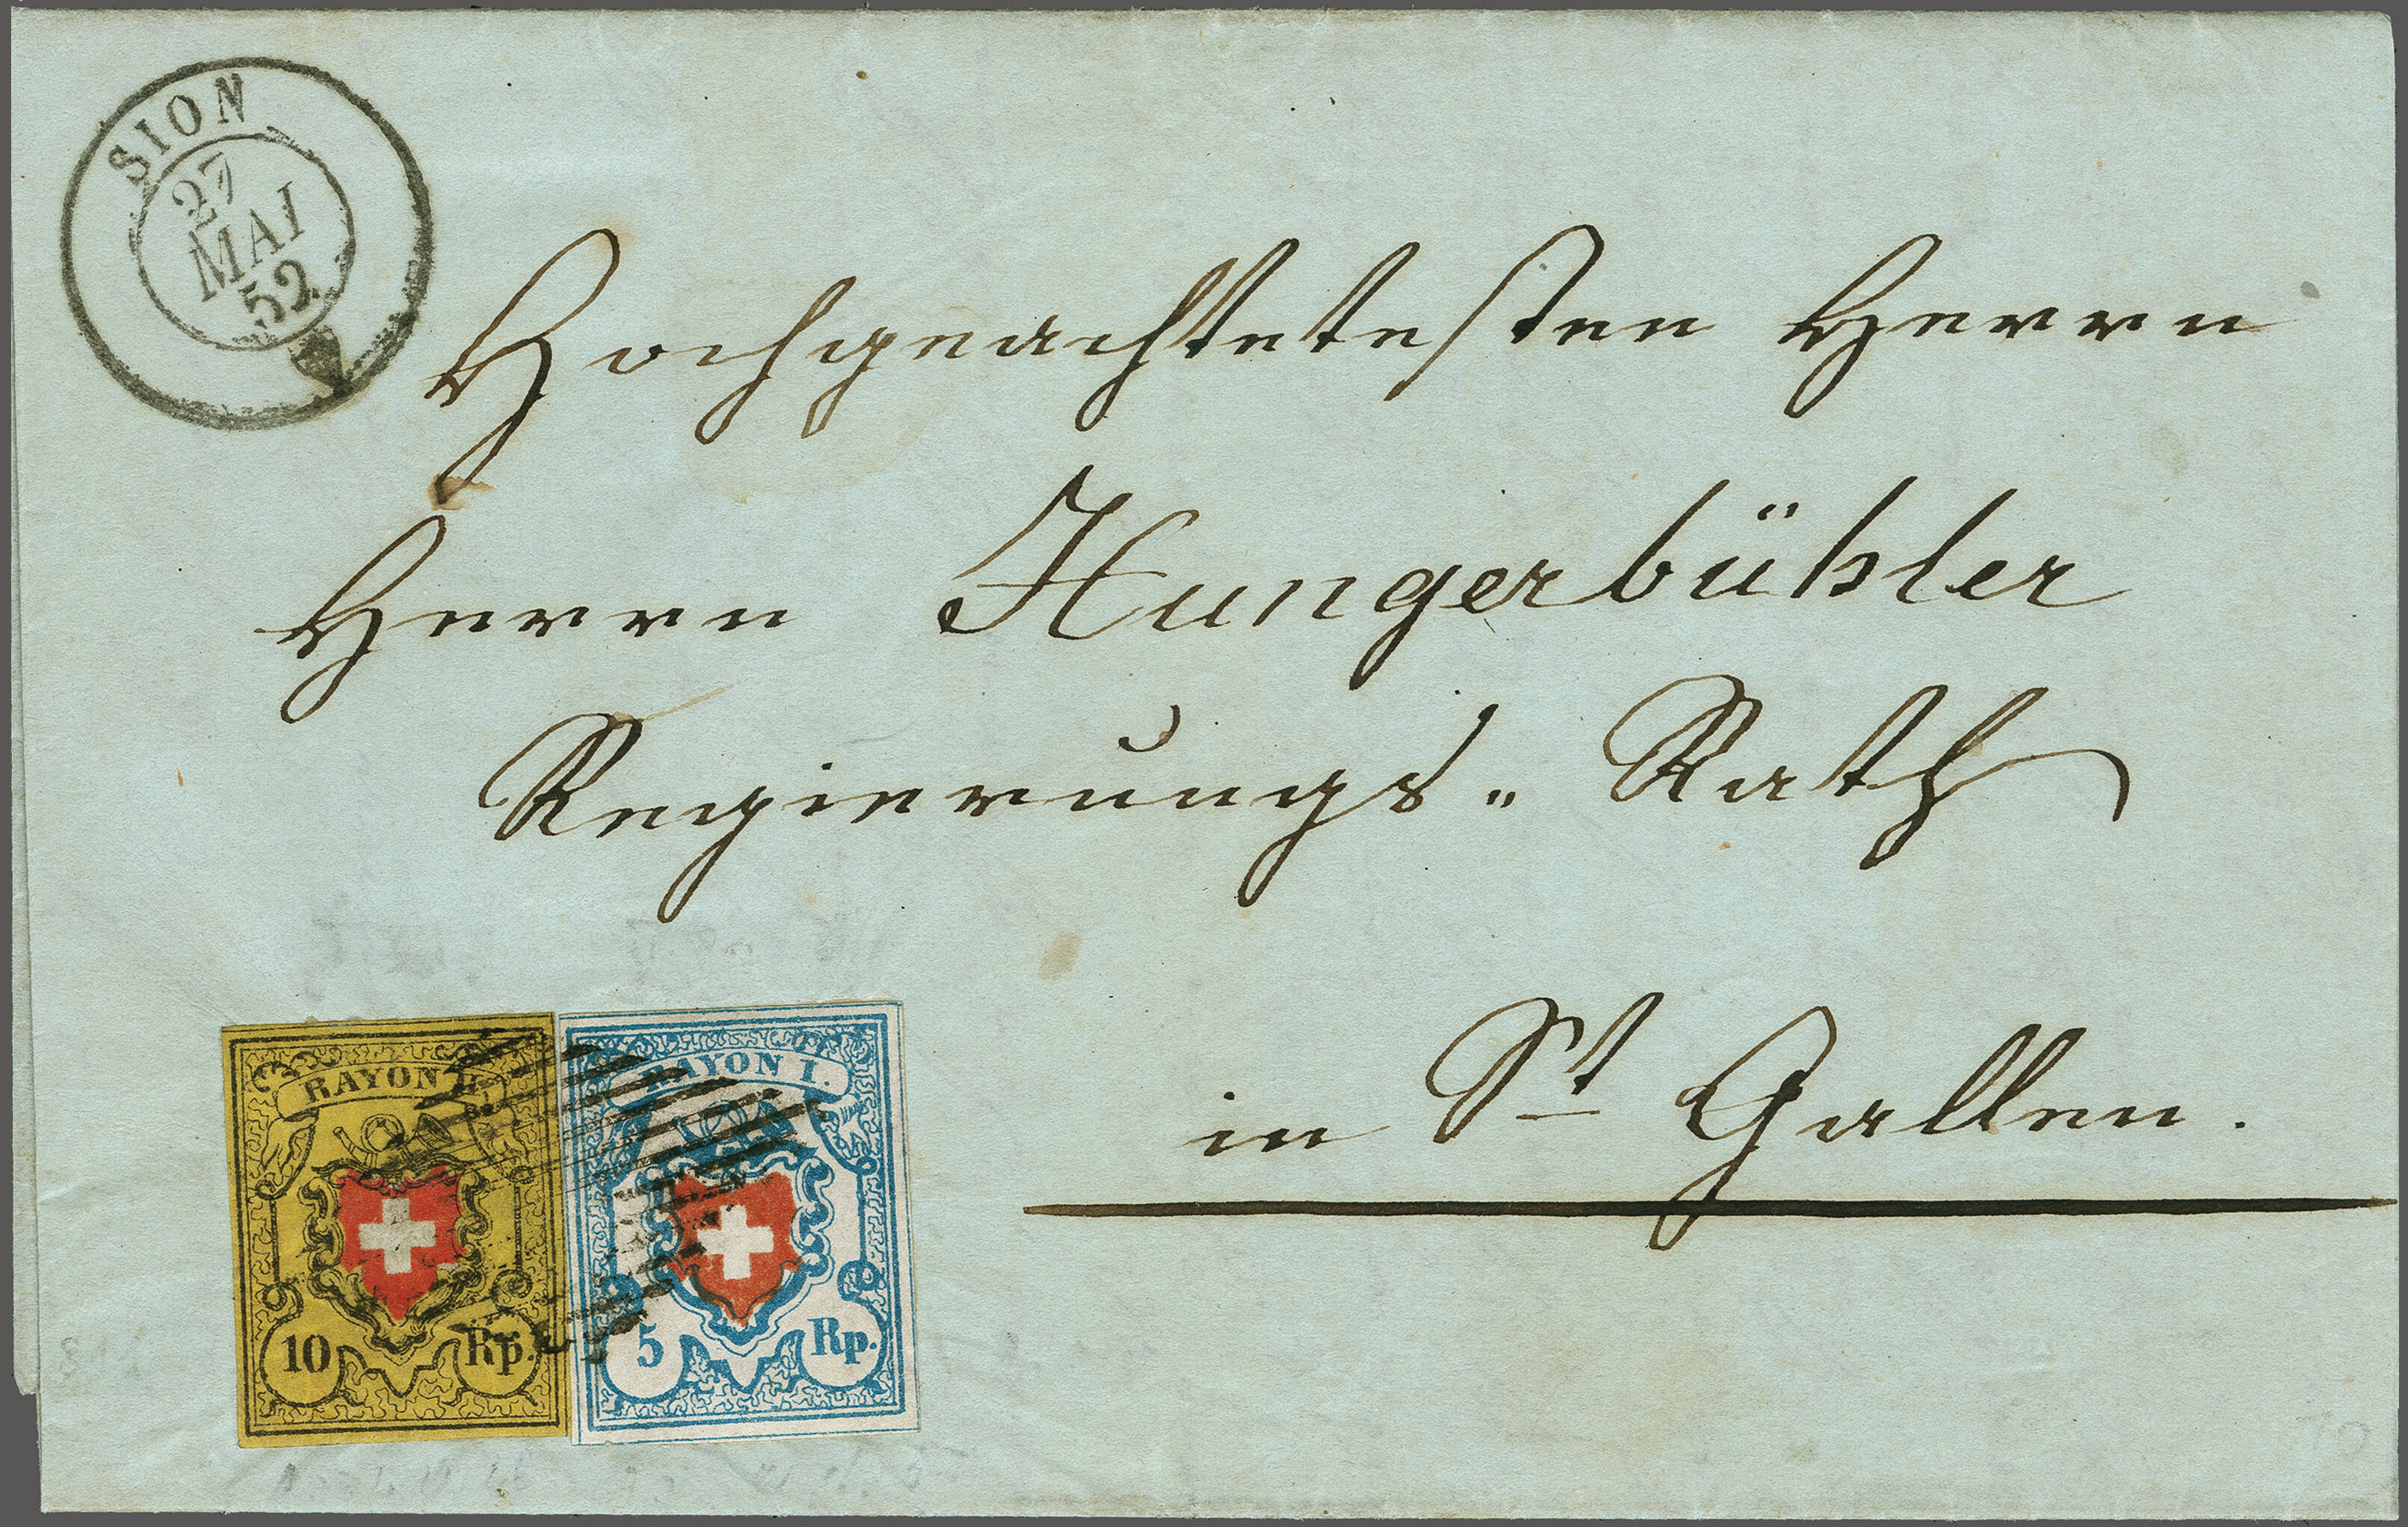 SION
27
MAI
52
Hochgeachtetesten Herrn
Herrn Hungerbühler
Regierungs„ Rath
in St Gallen.
RAYON II.
10 Rp.
RAYON I.
5 Rp.